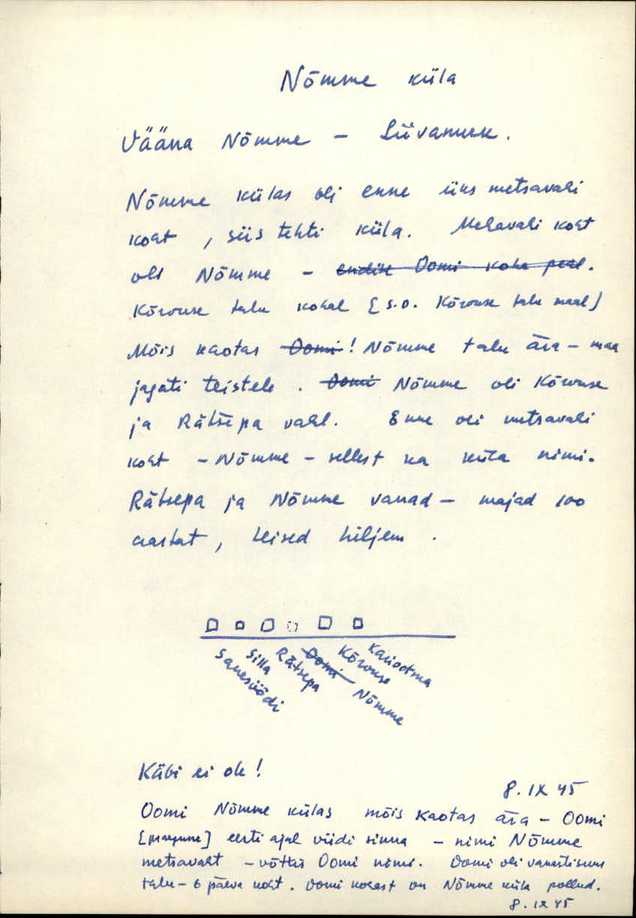 Nõmme küla
Vääna Nõmme – Liivamäe.
Nõmme külas oli enne üks metsavahi
koht, siis tehti küla. Metsavahi koht
oli Nõmme – endise Oomi koha peal.
Kõrvuse talu kohal [s.o. Kõrvuse talu maal]
Mõis kaotas Oomi! Nõmme talu ära – maa
jagati teistele. Oomi Nõmme oli Kõrvuse
ja Rätsepa vahl. Enne oli metsavahi
koht – Nõmme – sellest ka küla nimi.
Rätsepa ja Nõmme vanad – majad 100
aastat, teised hiljem.
Sauesüödi
Silla
Rätsepa
Oomi Nõmme
Kõrvuse
Käbi ei ole!
8. IX 45
Oomi Nõmme külas mõis kaotas ära – Oomi
eesti ajal viidi sinna – nimi Nõmme
metsavaht – võttis Oomi nime. Oomi oli
talu – 6 päeva koht. Oomi kohast on Nõmme küla põllud.
8. IX 45